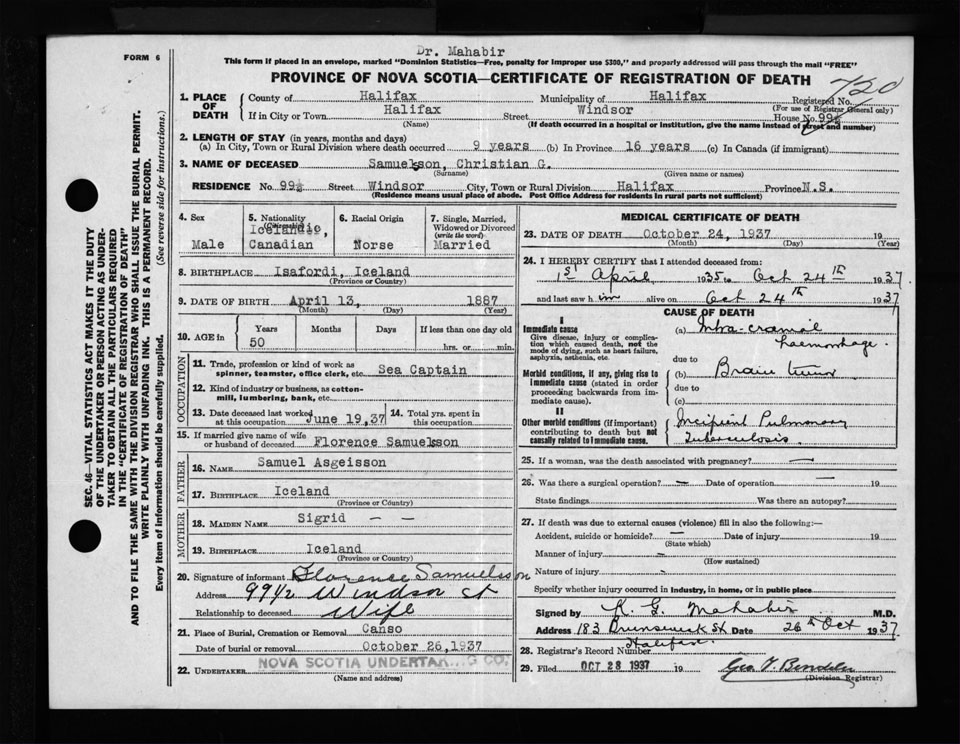 Dr. Mahabir
FORM 6
This form if placed in an envelope, marked "Dominion Statistics—Free, penalty for improper use $300," and properly addressed will pass through the mail "FREE"
PROVINCE OF NOVA SCOTIA—CERTIFICATE OF REGISTRATION OF DEATH
720
1. PLACE OF DEATH
County of Halifax Municipality of Halifax Registered No.
(For use of Registrar General only)
If in City or Town Halifax Street Windsor House No. 99½
(Name) (If death occurred in a hospital or institution, give the name instead of street and number)
2. LENGTH OF STAY (in years, months and days)
(a) In City, Town or Rural Division where death occurred 9 years (b) In Province 16 years (c) In Canada (if immigrant)
3. NAME OF DECEASED Samuelsson, Christian G.
(Surname) (Given name or names)
RESIDENCE No. 99½ Street Windsor City, Town or Rural Division Halifax Province N.S.
(Residence means usual place of abode. Post Office Address for residents in rural parts not sufficient)
4. Sex Male
5. Nationality (Citizenship) Icelandic, Canadian
6. Racial Origin Norse
7. Single, Married, Widowed or Divorced (write the word) Married
8. BIRTHPLACE Isafordi, Iceland
(Province or Country)
9. DATE OF BIRTH April 13, 1887
(Month) (Day) (Year)
10. AGE in Years Months Days If less than one day old
50 hrs. or min.
OCCUPATION
11. Trade, profession or kind of work as spinner, teamster, office clerk, etc. Sea Captain
12. Kind of industry or business, as cotton-mill, lumbering, bank, etc.
13. Date deceased last worked at this occupation June 19,37
14. Total yrs. spent in this occupation
15. If married give name of wife or husband of deceased Florence Samuelsson
FATHER
16. NAME Samuel Asgeisson
17. BIRTHPLACE Iceland
(Province or Country)
MOTHER
18. MAIDEN NAME Sigrid — —
19. BIRTHPLACE Iceland
(Province or Country)
20. Signature of informant Florence Samuelsson
Address 99½ Windsor St
Relationship to deceased Wife
21. Place of Burial, Cremation or Removal Canso
Date of burial or removal October 26,1937
22. UNDERTAKER NOVA SCOTIA UNDERTAK G CO.
(Name and address)
MEDICAL CERTIFICATE OF DEATH
23. DATE OF DEATH October 24, 1937 19
(Month) (Day) (Year)
24. I HEREBY CERTIFY that I attended deceased from:
1st April 1935 to Oct 24th 1937
and last saw him alive on Oct 24th 1937
CAUSE OF DEATH
I
Immediate cause
Give disease, injury or complication which caused death, not the mode of dying, such as heart failure, asphyxia, asthenia, etc.
(a) Intra-cranial haemorrhage.
due to
Morbid conditions, if any, giving rise to immediate cause (stated in order proceeding backwards from immediate cause).
(b) Brain tumor
due to
(c)
II
Other morbid conditions (if important) contributing to death but not causally related to immediate cause.
Incipient Pulmonary Tuberculosis
25. If a woman, was the death associated with pregnancy? —
26. Was there a surgical operation? — Date of operation — 19
State findings Was there an autopsy?
27. If death was due to external causes (violence) fill in also the following:—
Accident, suicide or homicide? — Date of injury 19
(State which)
Manner of injury –
(How sustained)
Nature of injury –
Specify whether injury occurred in industry, in home, or in public place
Signed by K. G. Mahabir M.D.
Address 183 Brunswick St Date 26th Oct 1937
Halifax
28. Registrar's Record Number
29. Filed OCT 28 1937 19
(Division Registrar)
SEC. 46—VITAL STATISTICS ACT MAKES IT THE DUTY
OF THE UNDERTAKER OR PERSON ACTING AS UNDER-
TAKER TO OBTAIN ALL THE PARTICULARS REQUIRED
IN THE "CERTIFICATE OF REGISTRATION OF DEATH"
AND TO FILE THE SAME WITH THE DIVISION REGISTRAR WHO SHALL ISSUE THE BURIAL PERMIT.
WRITE PLAINLY WITH UNFADING INK. THIS IS A PERMANENT RECORD.
Every item of information should be carefully supplied. (See reverse side for instructions.)